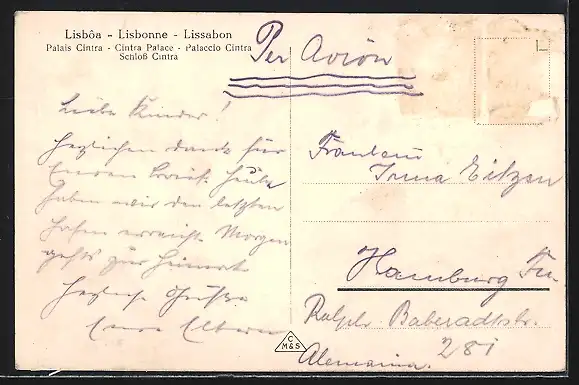 Lisbôa - Lisbonne - Lissabon
Palais Cintra - Cintra Palace - Palaccio Cintra
Schloß Cintra
Per Avion
Liebe Kinder!
Herzlichen Dank für
Eueren Brief. Heute
haben wir den letzten
Hafen erreicht. Morgen
gehts zur Heimat.
Herzliche Grüße
Eure Eltern
Fräulein
Irma Eitzen
Hamburg Fu.
Ralph 
281
Alemania.
C
M&S